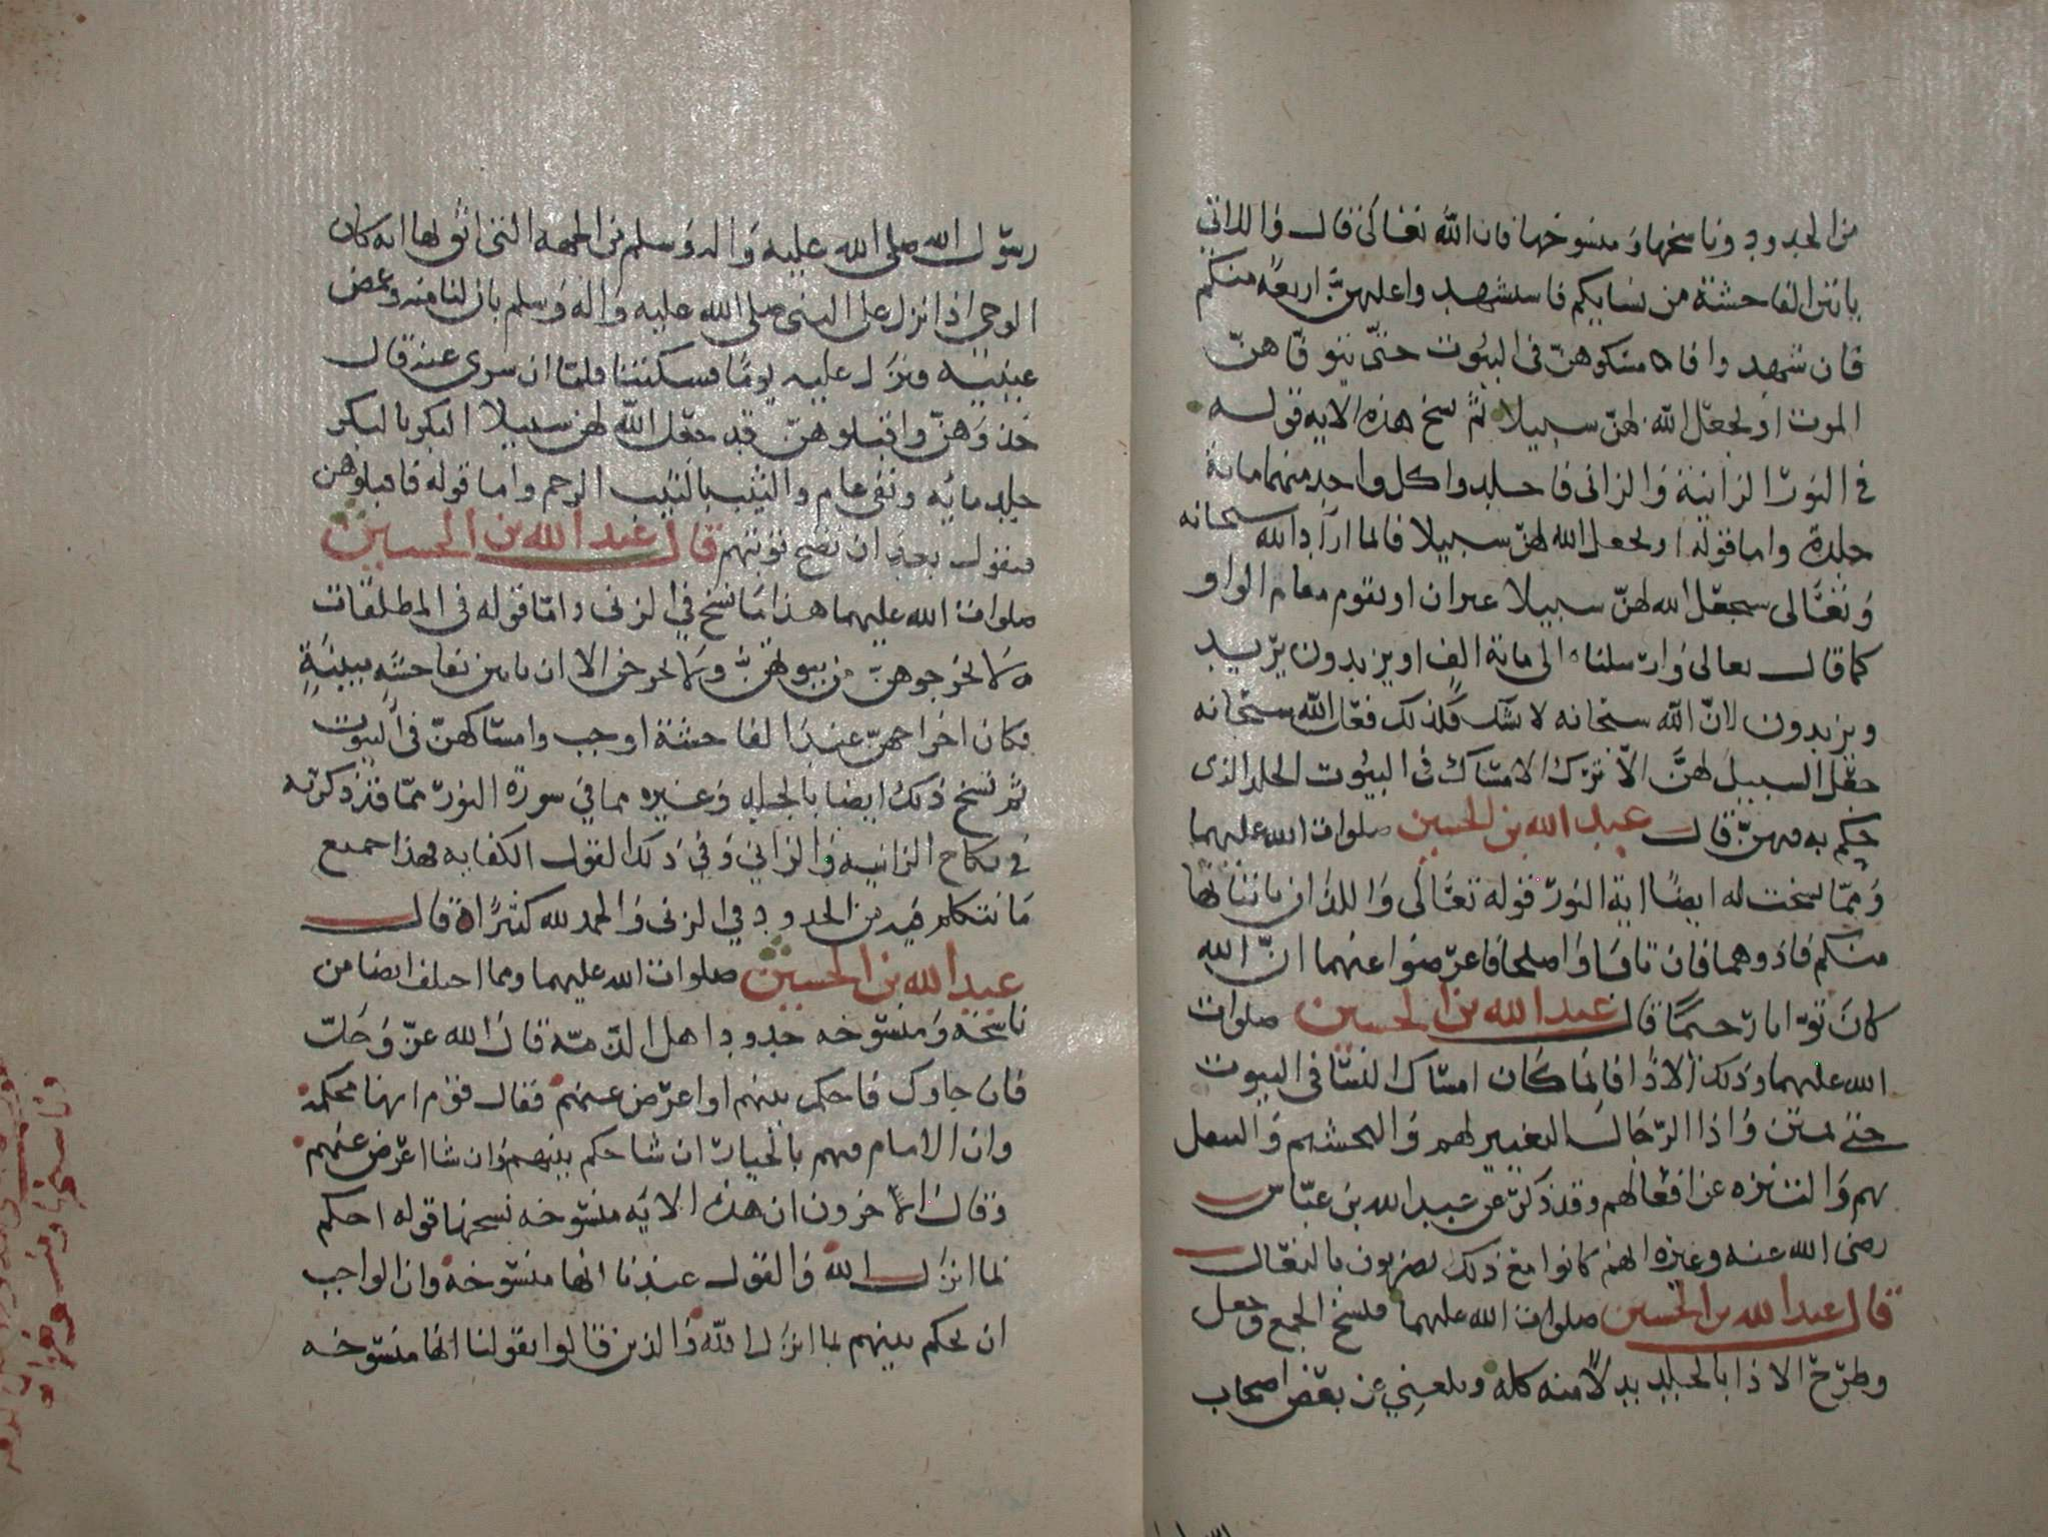 من الحدود وناسخها ومنسوخها فان الله تعالى قال واللاتي
ياتين الفاحشة من نسايكم فاستشهدوا عليهن اربعة منكم
فان شهدوا فامسكوهن في البيوت حتى يتوفاهن
الموت او يجعل الله لهن سبيلا ثم نسخ هذه الايه قوله
في النور الزانية والزاني فاجلدوا كل واحد منهما مائة
جلدة واما قوله او يجعل الله لهن سبيلا فانما اراد الله سبحانه
وتعالى سيجعل الله لهن سبيلا غير ان او تقوم مقام الواو
كما قال تعالى وارسلناه الى مائة الف او يزيدون يريد
ويزيدون لان الله سبحانه لا يشك فكذلك فعل الله سبحانه
جعل السبيل لهن الا ترك الامساك في البيوت الجلد الذى
حكم به فيهن قال عبد الله بن الحسين صلوات الله عليهما
ومما نسخت له ايضا اية النور قوله تعالى واللذان ياتيانها
منكم فاذوهما فان تابا واصلحا فاعرضوا عنهما ان الله
كان توابا رحيما قال عبد الله بن الحسين صلوات
الله عليهما وذلك الاذا فانما كان امساك النسا في البيوت
حتى يمتن واذا الرجال التعيير لهم والتحشيم
بهم والتنزه عن افعالهم وقد ذكر عن عبد الله بن عباس
رضى الله عنه وغيره انهم كانوا مع ذلك يضربون بالنعال
قال عبد الله بن الحسين صلوات الله عليهما فنسخ الجمع وجعل
وطرح الاذا بالجلد بدلا منه كله وبلغني عن بعض اصحاب
رسول الله صلى الله عليه واله وسلم من الجهه التى اثق لها انه كان
الوحي اذا نزل على النبى صلى الله عليه واله وسلم بان لنا منه وغمض
عينيه ونزل عليه يوما فسكتنا فلما ان سرى عنه قال
خذوهن واقبلوهن قد جعل الله لهن سبيلا البكر بالبكر
جلد مايه ونفي عام والثيب بالثيب الرجم واما قوله فاقبلوهن
فيقول بعد ان تصح توبتهم قال عبد الله بن الحسين
صلوات الله عليهما هذا ما نسخ في الزنى واما قوله في المطلقات
ولا تخرجوهن من بيوتهن ولا يخرجن الا ان ياتين بفاحشه مبينة
فكان اخراجهن عند الفاحشة اوجب وامساكهن في البيوت
ثم نسخ ذلك ايضا بالجلد وغيره مما في سورة النور مما قد ذكرته
في نكاح الزانيه والزاني وفي ذلك القول الكفايه فهذا جميع
ما نتكلم فيه من الحدود في الزنى والحمد لله كثيرا قال
عبد الله بن الحسين صلوات الله عليهما ومما اختلف ايضا من
ناسخه ومنسوخه حدود اهل الذمة قال الله عز وجل
فان جاوك فاحكم بينهم او اعرض عنهم فقال قوم انها محكمة
وان الامام فيهم بالخيار ان شا حكم بينهم وان شا اعرض عنهم
وقال الاخرون ان هذه الايه منسوخه نسخها قوله احكم
بما انزل الله والقول عندنا انها منسوخة وان الواجب
ان يحكم بينهم بما انزل الله والذين قالوا بقولنا انها منسوخه